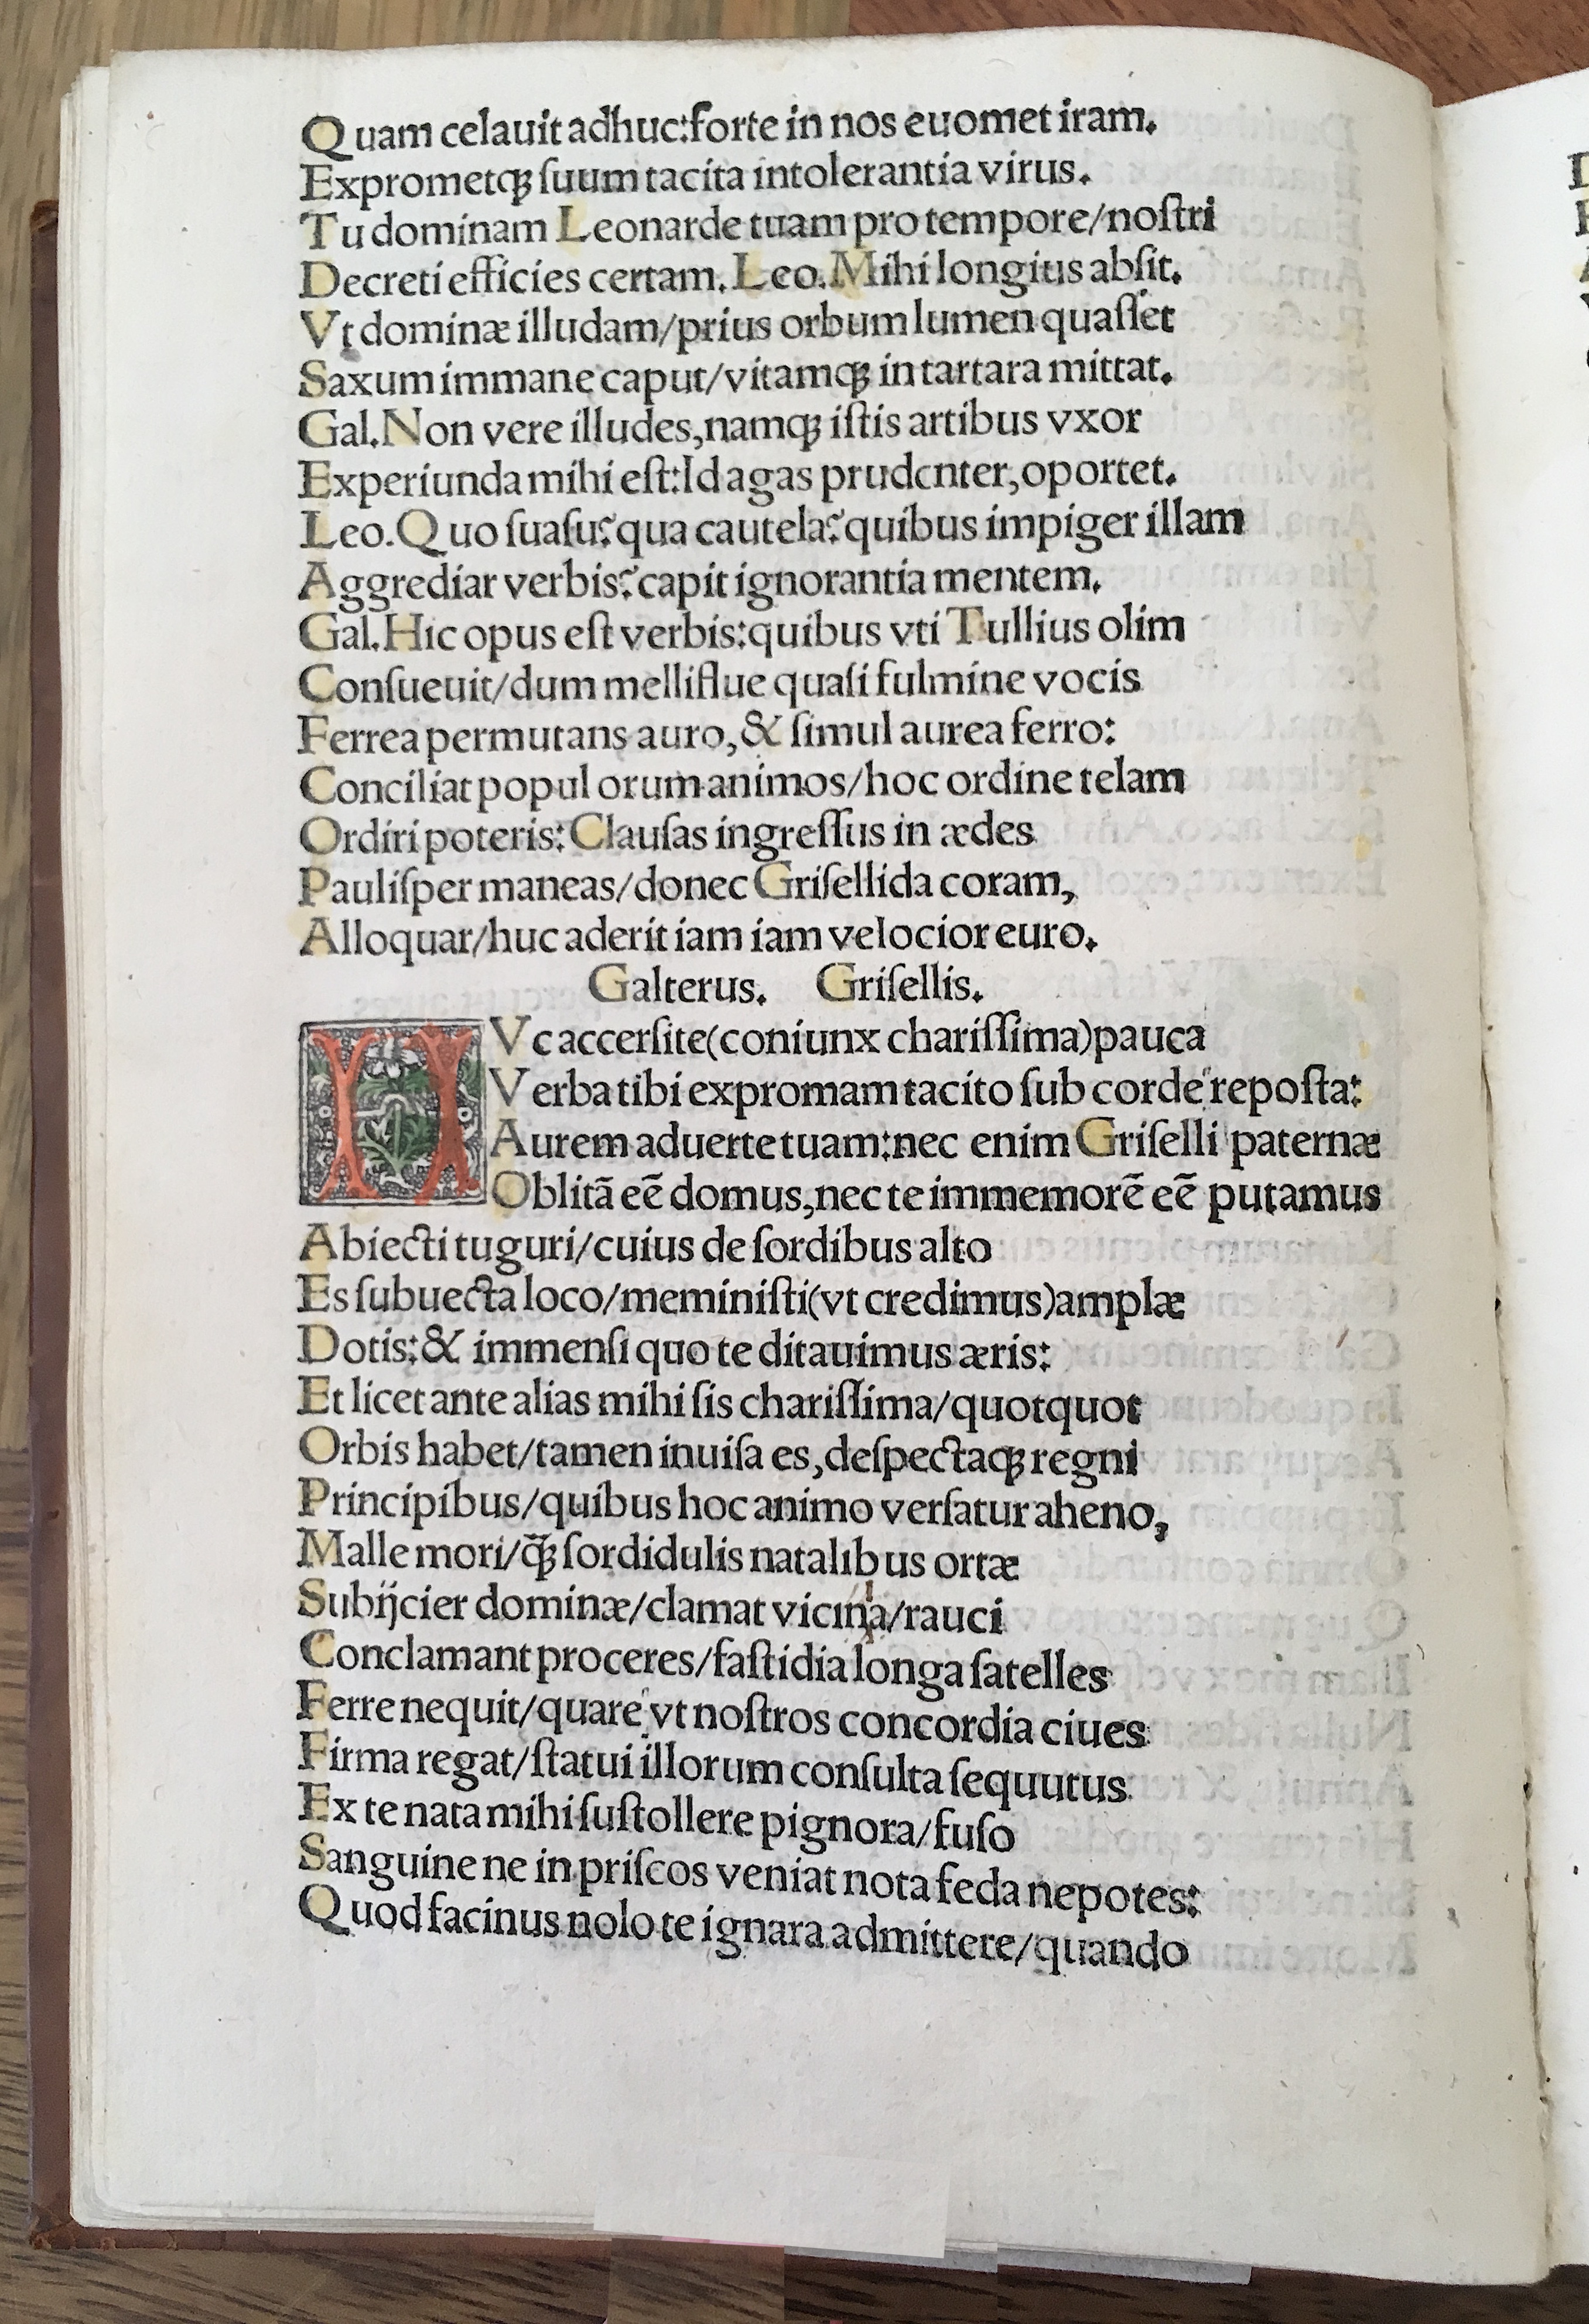 Quam celauit adhuc:forte in nos euomet iram.
Exprometqꝫ ſuum tacita intolerantia virus.
Tu dominam Leonarde tuam pro tempore/noſtri
Decreti efficies certam. Leo. Mihi longius abſit.
Vt dominæ illudam/prius orbum lumen quaſſet
Saxum immane caput/vitamqꝫ in tartara mittat.
Gal. Non vere illudes,namqꝫ iſtis artibus vxor
Experiunda mihi eſt:Id agas prudenter,oportet.
Leo. Quo ſuaſu? qua cautela? quibus impiger illam
Aggrediar verbis? capit ignorantia mentem.
Gal. Hic opus eſt verbis:quibus vti Tullius olim
Conſueuit/dum melliflue quaſi fulmine vocis
Ferrea permutans auro,& ſimul aurea ferro:
Conciliat popul orum animos/hoc ordine telam
Ordiri poteris: Clauſas ingreſſus in ædes
Pauliſper maneas/donec Griſellida coram,
Alloquar/huc aderit iam iam velocior euro.
Galterus. Griſellis.
HVc accerſite(coniunx chariſſima)pauca
Verba tibi expromam tacito ſub corde repoſta:
Aurem aduerte tuam:nec enim Griſelli paternæ
Oblitā eē domus,nec te immemorē eē putamus
Abiecti tuguri/cuius de ſordibus alto
Es ſubuecta loco/meminiſti(vt credimus)amplæ
Dotis:& immenſi quo te ditauimus æris:
Et licet ante alias mihi ſis chariſſima/quotquot
Orbis habet/tamen inuiſa es,deſpectaqꝫ regni
Principibus/quibus hoc animo verſatur aheno,
Malle mori/q̄ꝫ ſordidulis natalibus ortæ
Subijcier dominæ/clamat vicina/rauci
Conclamant proceres/faſtidia longa ſatelles
Ferre nequit/quare vt noſtros concordia ciues
Firma regat/ſtatui illorum conſulta ſequutus
Ex te nata mihi ſuſtollere pignora/fuſo
Sanguine ne in priſcos veniat nota feda nepotes:
Quod facinus nolo te ignara admittere/quando